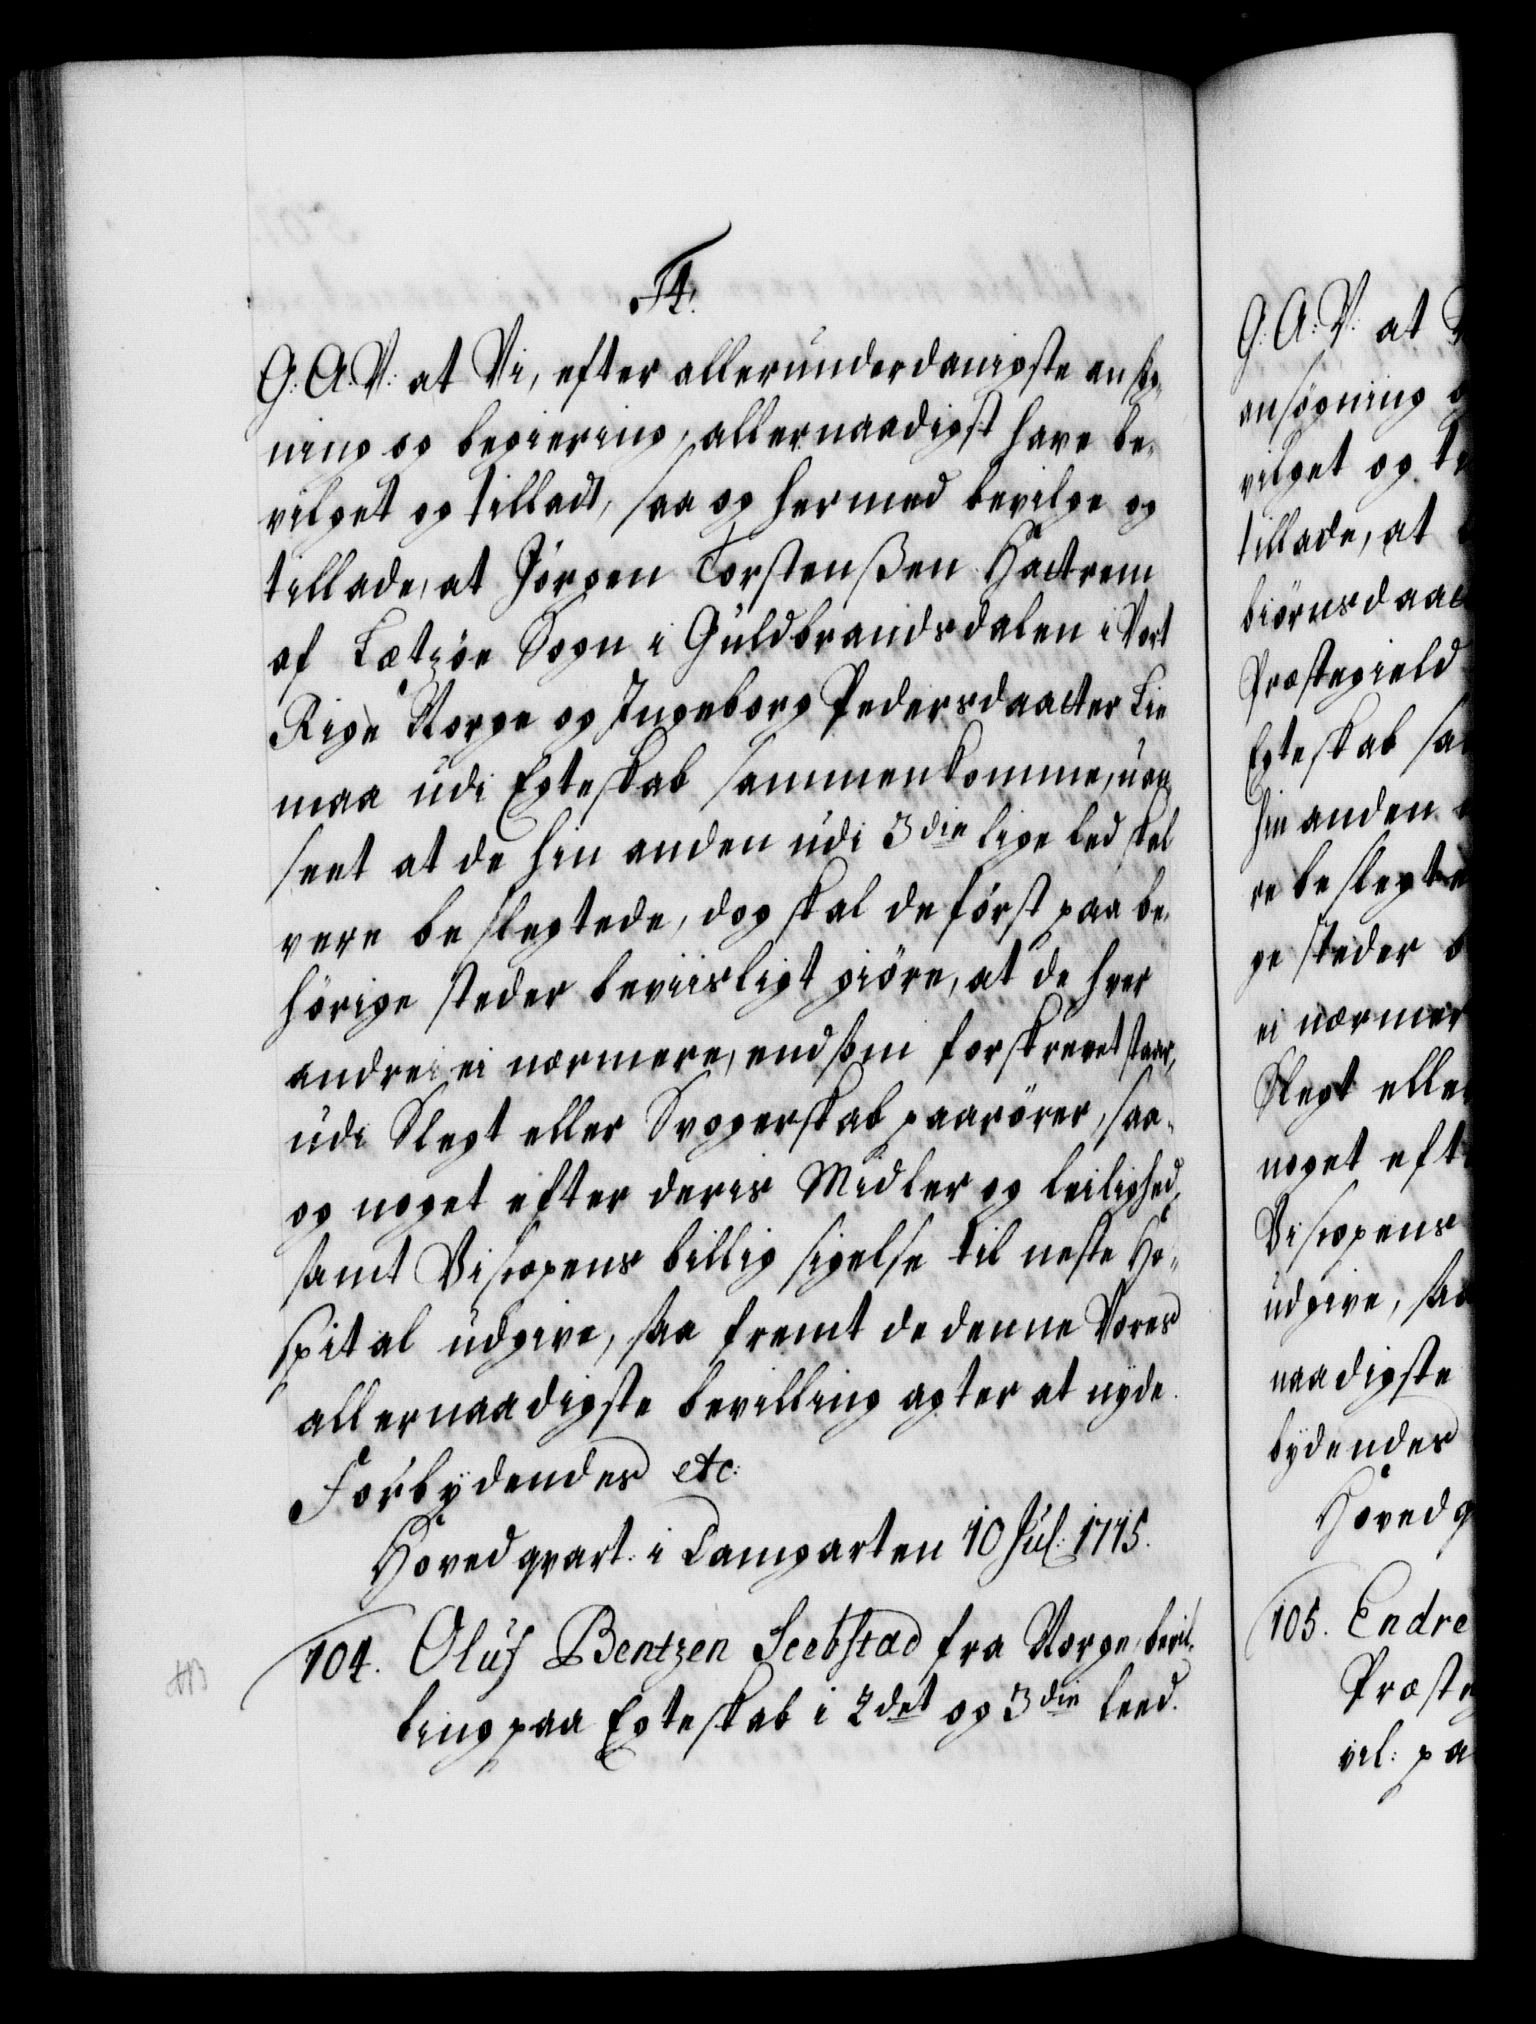 F4.
G: A: V: at Vi, efter allerunderdanigste ansøg-
ning og begiering, allernaadigst have be-
vilget og tilladt, saa og hermed bevilge og
tillade, at Jørgen Torstensßen Hactrem
af Lætzøe Sogn i Guldbrandsdalen i Vort
Rige Norge og Ingeborg Pedersdaatter Lie
maa udi Egteskab sammenkomme, uan-
seet at de hin anden udi 3die lige led skal
vere beslegtede, dog skal de først paa be-
hørige steder beviisligt giøre, at de hver
andre ei nærmere, end som forskrevet staar,
udi Slegt eller Svogerskab paarører, saa-
og noget efter deris Midler og leilighed,
samt Viscopens billig sigelse til neste Ho-
spital udgive, saa fremt de denne Vores
allernaadigste bevilling agter at nyde.
Forbydendes etc:
Hovedqvart: i Lamparten 10 Jul: 1715.
104. Oluf Bentzen Seebstad fra Norge, bevil-
ling paa Egteskab i 2det og 3die leed.
G: A: V: at
ansøgning
vilget og
tillade, at
biørnsdaat
Præstegield
Egteskab
hin anden
re beslegte
ge steder
ei nærmer
Slegt eller
noget eft
Viscopens
udgive, saa
naadigste
bydendes
Hovedq
105. Endre
Præste
vil: pa